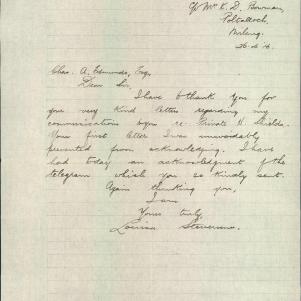 C/o Mr K. D. Bowman,
Poltalloch,
Narrung.
26.6.16.
Chas. A. Edmunds, Esq,
Dear Sir,
I have to thank you for
your very kind letters regarding my
communications re Private H. Shields.
Your first letter I was unavoidably
prevented from acknowledging. I have
had today an acknowledgment of the
telegram which you so kindly sent.
Again thanking you,
I am
Yours truly,
Louisa Stevenson.